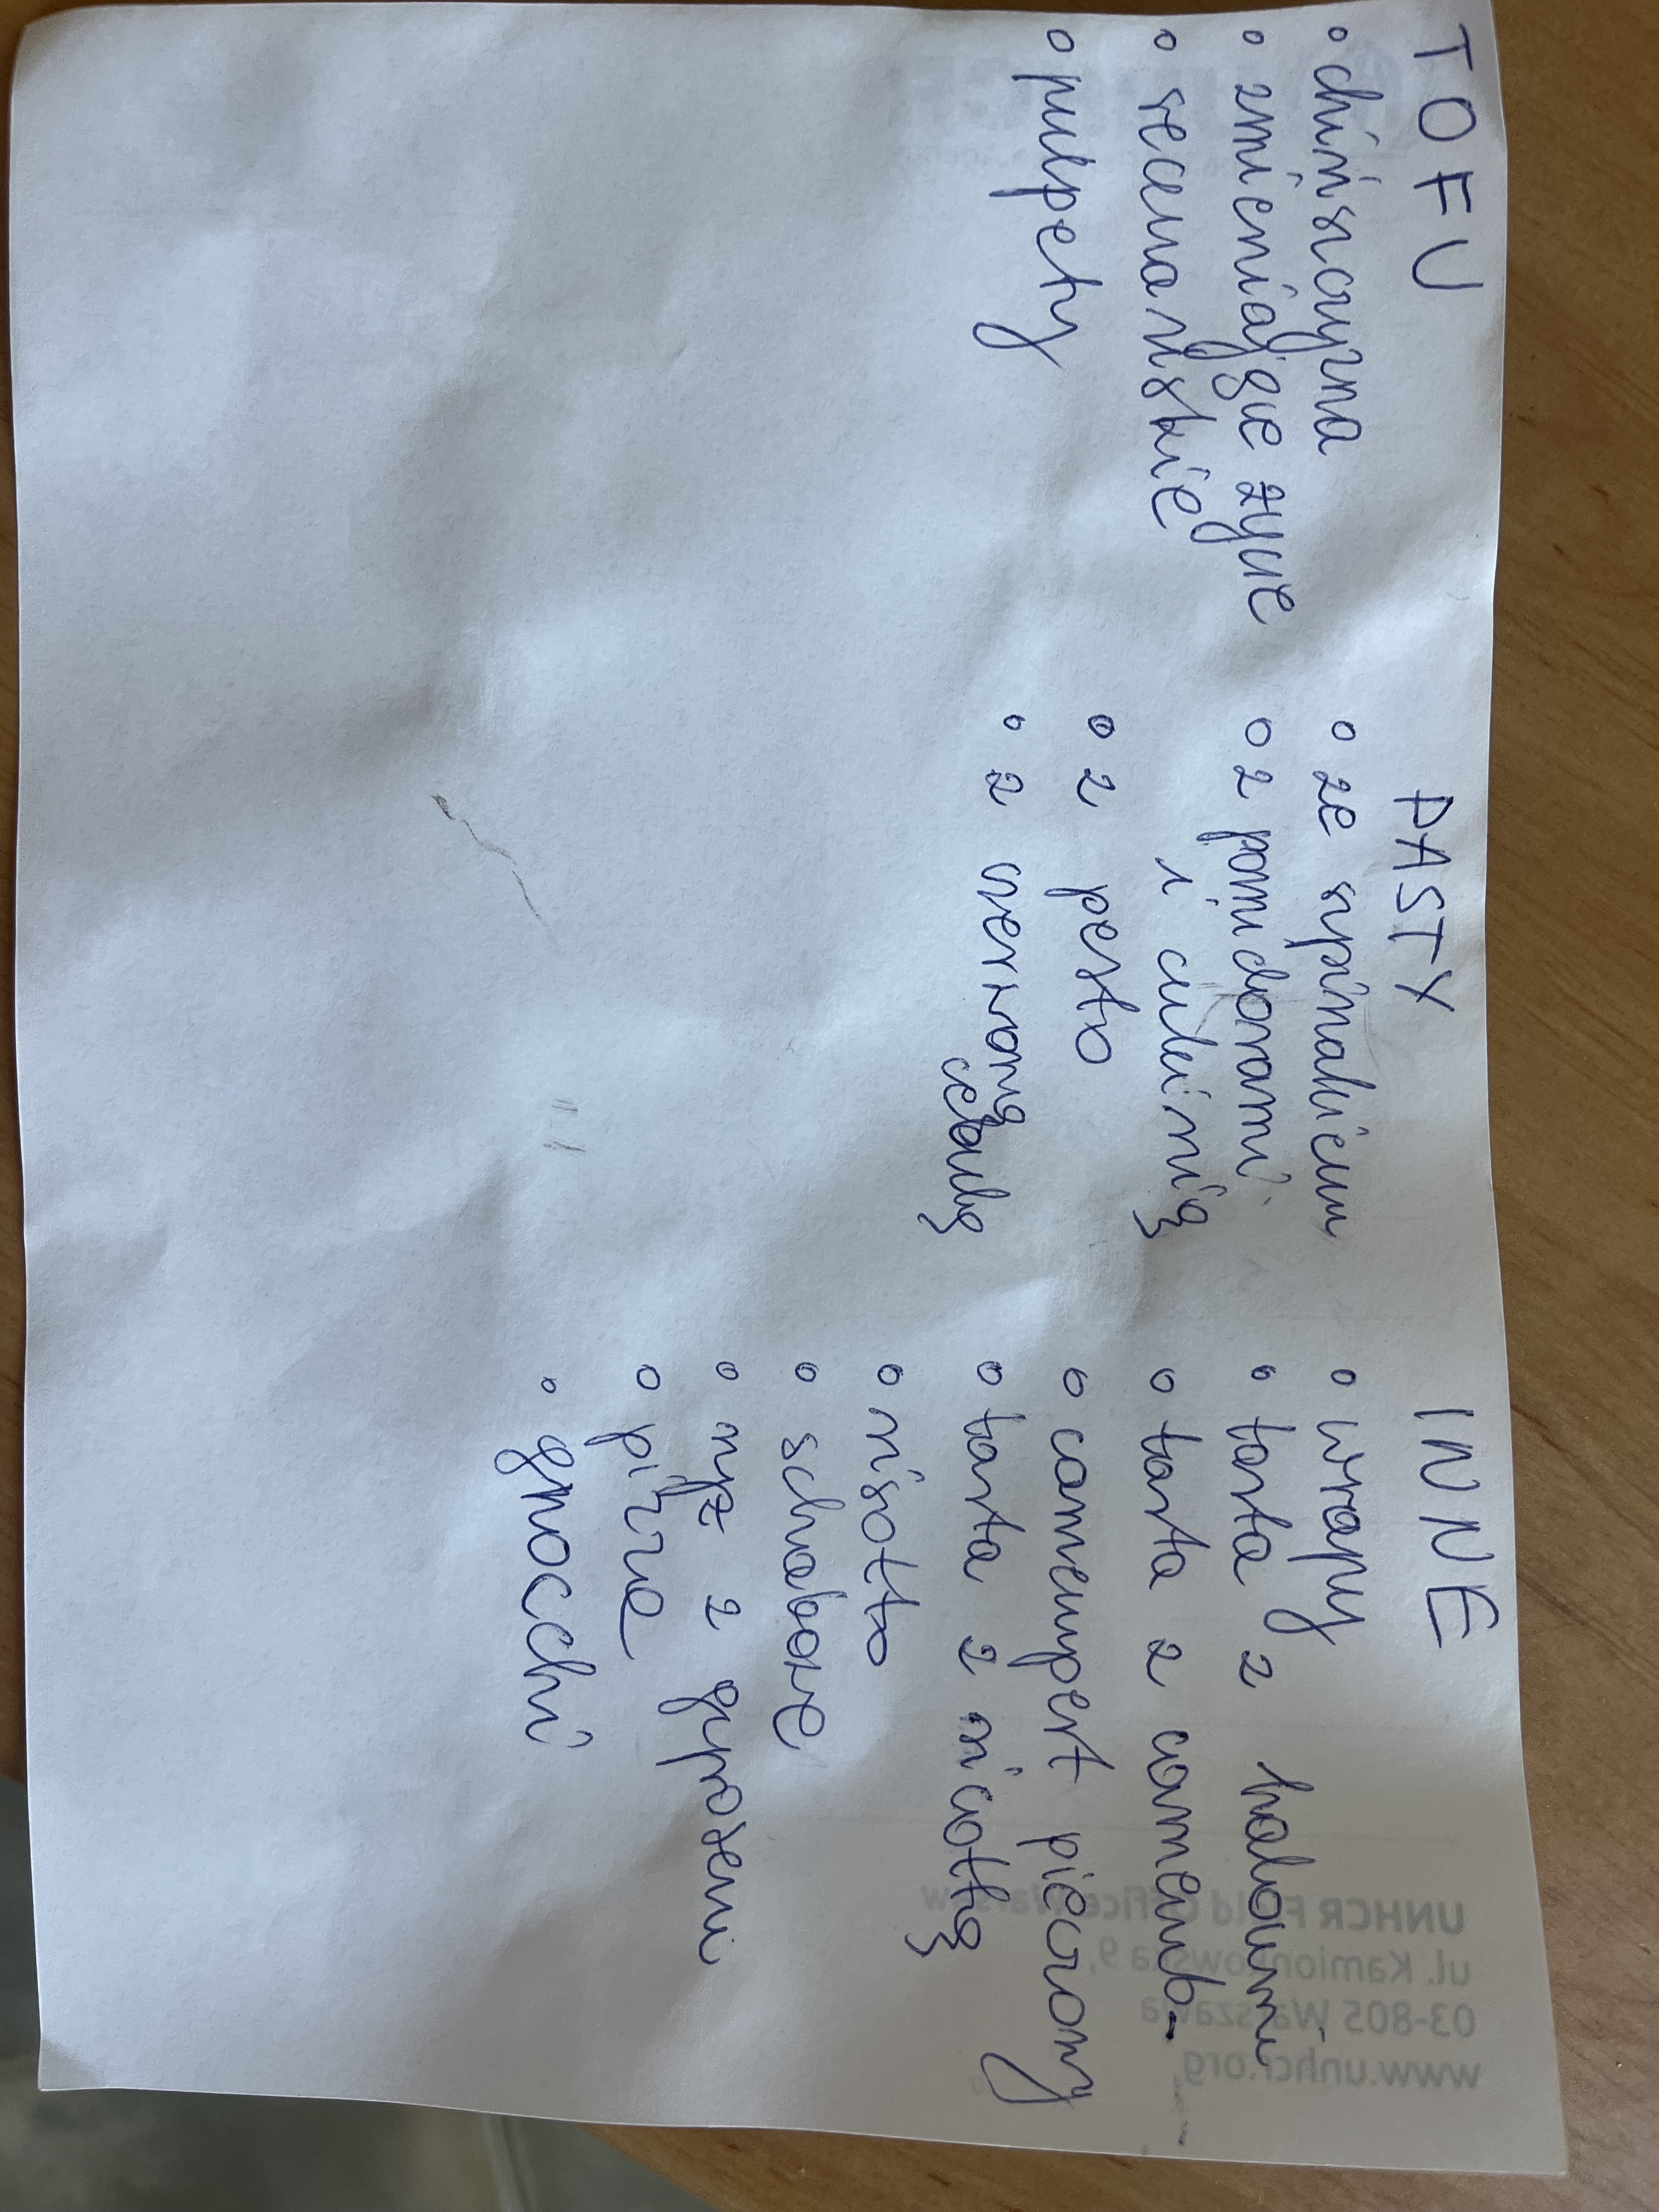 TOFU
• chińszczyzna
• zmieniające życie
• seczuańskie
• pulpety
PASTY
• ze szpinakiem
• z pomidorami
i cukinią
• z pesto
• z czerwoną
cebulą
INNE
• wrapy
• tarta z haloumi
• tarta z camemb-
• camempert pieczony
• tarta z ricottą
• risotto
• schabowe
• ryż z gyrosem
• pizza
• gnocchi
UNHCR Field Office Warsaw
ul. Kamionkowska 9,
03-805 Warszawa
www.unhcr.org